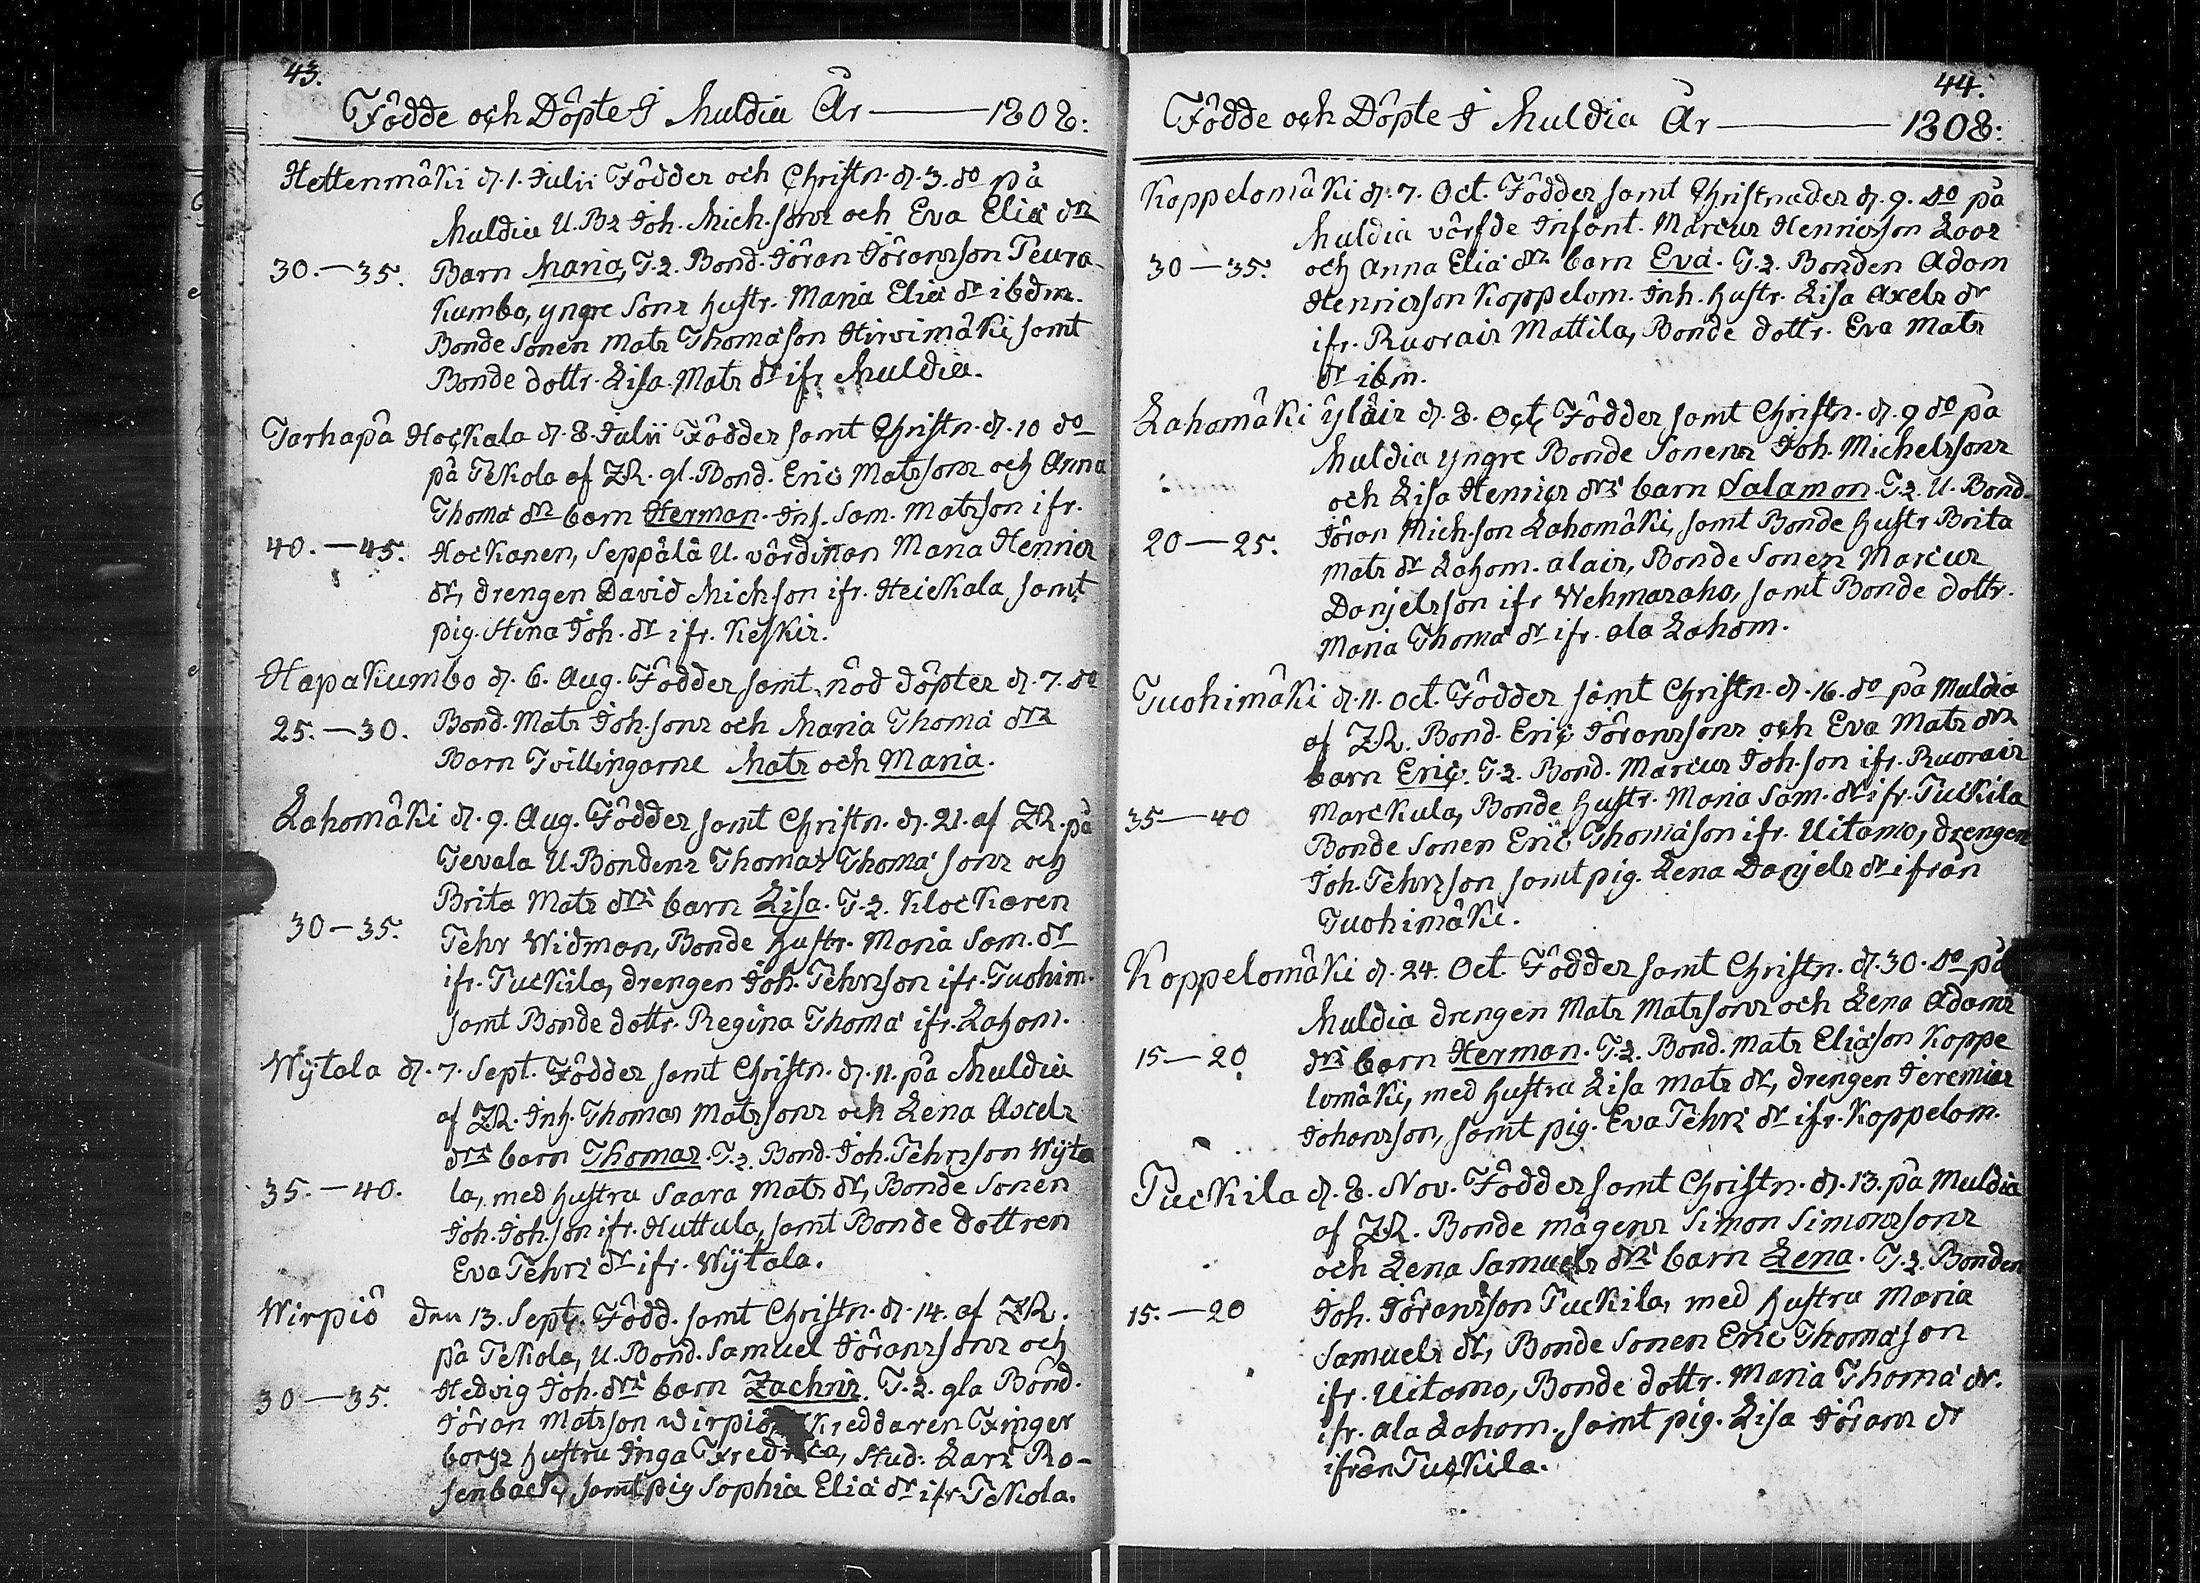 43.
Födde och Döpte I Muldia År — 1808:
Hettenmäki d. 1. Julii Födder och Christn. d. 3. do på
Muldia U. Bs Joh. Mich.sons och Eva Eliæ drs
30. — 35. Barn Maria, T. 2. Bond. Jöran Jöransson Teura-
kumbo, yngre Sons hustr. Maria Eliæ dr ibdm.
Bonde Sonen Mats Thomasson Hirvimäki, samt
Bonde dottr. Lisa Mats dr ifr. Muldia.
Tarhapä Hockala d. 8. Julii Födder samt Christn. d. 10 do
på Tekola af ZR. gl. Bond. Eric Matssons och Anna
Thomæ drs barn Herman. Inh. Sam. Matsson ifr.
40. — 45. Hockanen, Seppälä U. värdinnan Maria Henrics
dr, drengen David Michson ifr. Heickala, samt
pig. Stina Joh. dr ifr. Keskis.
Hapakumbo d. 6. Aug. Födder samt nöd döpter d. 7. do
25. — 30. Bond. Mats Joh.sons och Maria Thomæ drs
Barn Tvillingarne Mats och Maria.
Lahomäki d. 9. Aug. Födder samt Christn. d. 21. af ZR. på
Tevala U. Bondens Thomas Thomæ sons och
Brita Mats drs barn Lisa. T. 2. Klockaren
30 — 35. Pehr Widman, Bonde hustr. Maria Sam. dr
ifr. Puckila, drengen Joh. Pehrsson ifr. Tuohim.
samt Bonde dottr. Regina Thomæ ifr. Lahom.
Wijtala d. 7. Sept. Födder samt Christn. d. 11. på Muldia
af ZR. Inh. Thomas Matssons och Lena Axels
drs barn Thomas. T. 2. Bond. Joh. Pehrsson Wijta
35. — 40. la, med hustru Saara Mats dr, Bonde Sonen
Joh. Joh.son ifr. Huttula, samt Bonde dottren
Eva Pehrs dr ifr. Wijtala.
Wirpiö den 13. Sept. Född. samt Christn. d. 14. af ZR.
på Tekola, U. Bond. Samuel Jöranssons och
30 — 35. Hedvig Joh. drs barn Zachris. T. 2. gla Bond.
Jöran Matsson Wirpiö, Skreddaren Finger
borgs hustru Inga Fredrica, Stud: Lars Ro-
senback, samt pig Sophia Eliæ dr ifr Tekola.
44.
Födde och Döpte I Muldia År — 1808:
Koppelomäki d. 7. Oct. Födder samt Christnader d. 9. do på
Muldia värfde Infant. Marcus Henricsson Loos
30 — 35. och Anna Eliæ drs barn Eva. T. 2. Bonden Adam
Henricsson Koppelom. Inh. hustr. Lisa Axels dr
ifr. Ruorais Mattila, Bonde dottr. Eva Mats
dr ibm.
Lahomäki yläis d. 8. Oct. Födder samt Christn. d. 9 do på
Muldia yngre Bonde Sonens Joh. Michelssons
och Lisa Henrics drs barn Salamon. T. 2. U. Bond
20 — 25. Jöran Mich.son Lahomäki, samt Bonde hustr Brita
Mats dr Lahom. alais, Bonde Sonen Marcus
Danjelsson ifr Wehmasaho, samt Bonde dottr.
Maria Thomæ dr ifr. ala Lahom.
Tuohimäki d. 11. Oct. Födder samt Christn. d. 16. do på Muldia
af ZR. Bond. Eric Jöranssons och Eva Mats drs
barn Eric. T. 2. Bond. Marcus Joh.son ifr. Ruorais
35 — 40 Marckula, Bonde hustr. Maria Sam. dr ifr. Puckila
Bonde Sonen Eric Thomæson ifr. Uitamo, drengen
Joh. Pehrsson samt pig. Lena Danjels dr ifrån
Tuohimäki.
Koppelomäki d. 24. Oct. Födder samt Christn. d. 30. do på
Muldia drengen Mats Matssons och Lena Adams
15 — 20 drs barn Herman. T. 2. Bond. Mats Eliæson Koppe
lomäki, med hustru Lisa Mats dr, drengen Jeremias
Johansson, samt pig. Eva Pehrs dr ifr. Koppelom.
Puckila d. 8. Nov. Födder samt Christn. d. 13. på Muldia
af ZR. Bonde mågens Simon Simonssons
och Lena Samuels drs barn Lena. T. 2. Bonden
15. — 20 Joh. Jöransson Puckila, med hustru Maria
Samuels dr, Bonde Sonen Eric Thomæson
ifr. Uitamo, Bonde dottr. Maria Thomæ dr.
ifr. ala Lahom., samt pig. Lisa Jörans dr
ifrån Puckila.